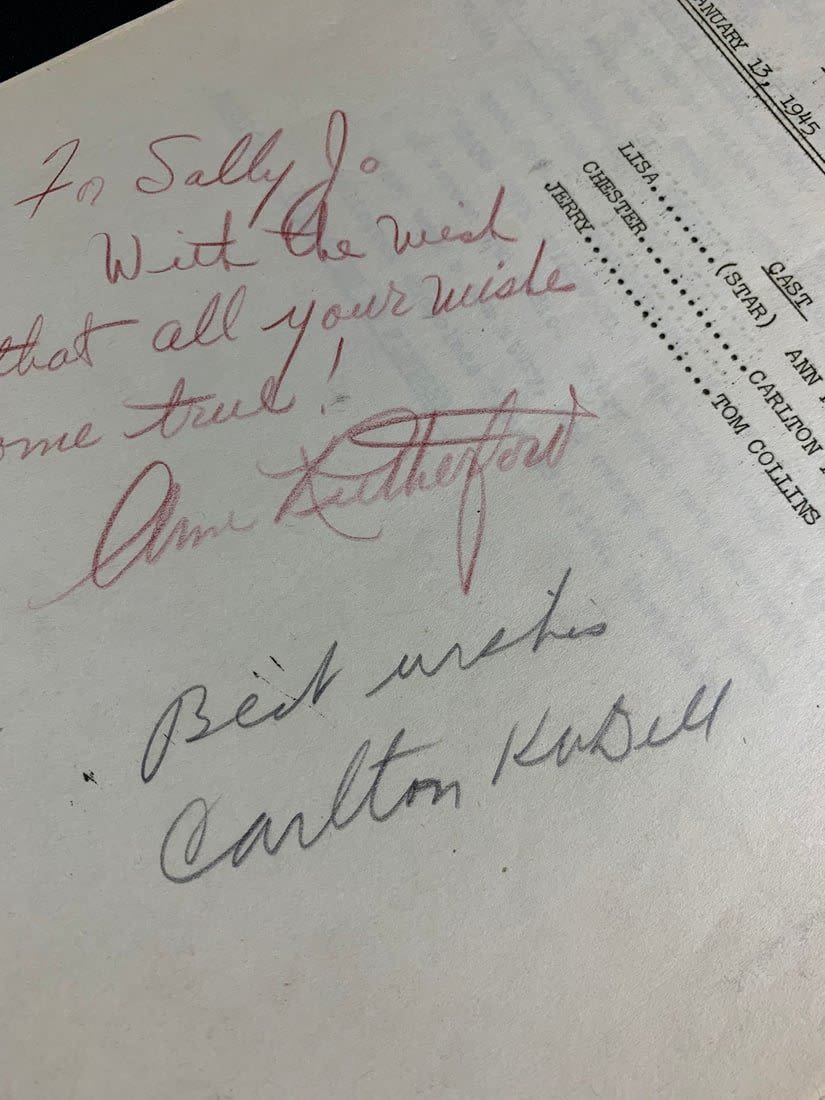 For Sally Jo
With the wish
that all your wishe
ome true!
Ann Rutherford
Best wishes
Carlton KaDell
ANUARY 13, 1945
CAST
LISA........(STAR) ANN
CHESTER............CARLTON
JERRY..............TOM COLLINS